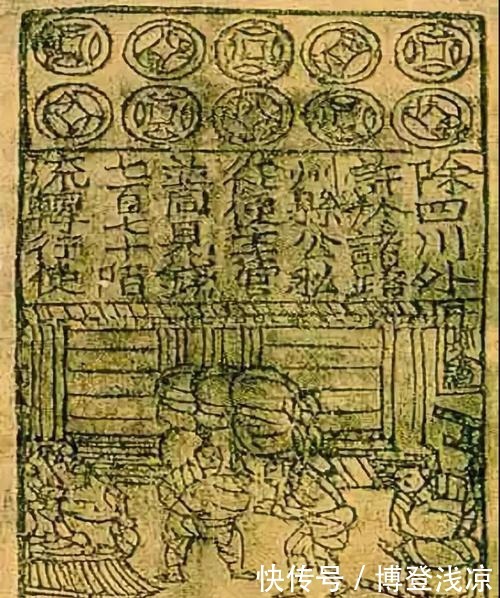 除四川外
許於諸路
州縣公私
從便主管
並同見錢
七百七十陌
流轉行使
快传号 / 博登浅凉